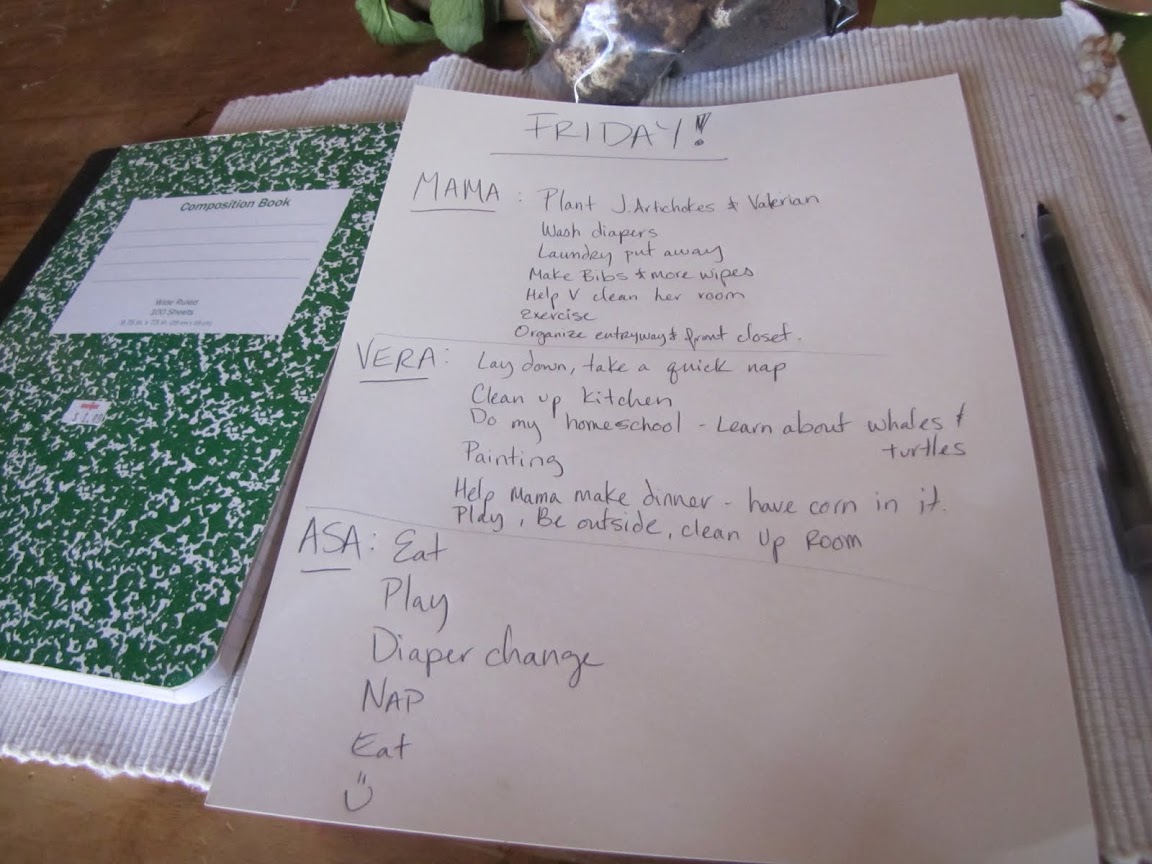 Composition Book
Wide Ruled
100 Sheets
FRIDAY!
MAMA : Plant J. Artichokes & Valerian
Wash diapers
Laundry put away
Make Bibs & more wipes
Help V clean her room
Exercise
Organize entryway & front closet.
VERA : Lay down, take a quick nap
Clean up kitchen
Do my homeschool - Learn about whales &
turtles
Painting
Help Mama make dinner - have corn in it.
Play, Be outside, clean up Room
ASA : Eat
Play
Diaper change
NAP
Eat